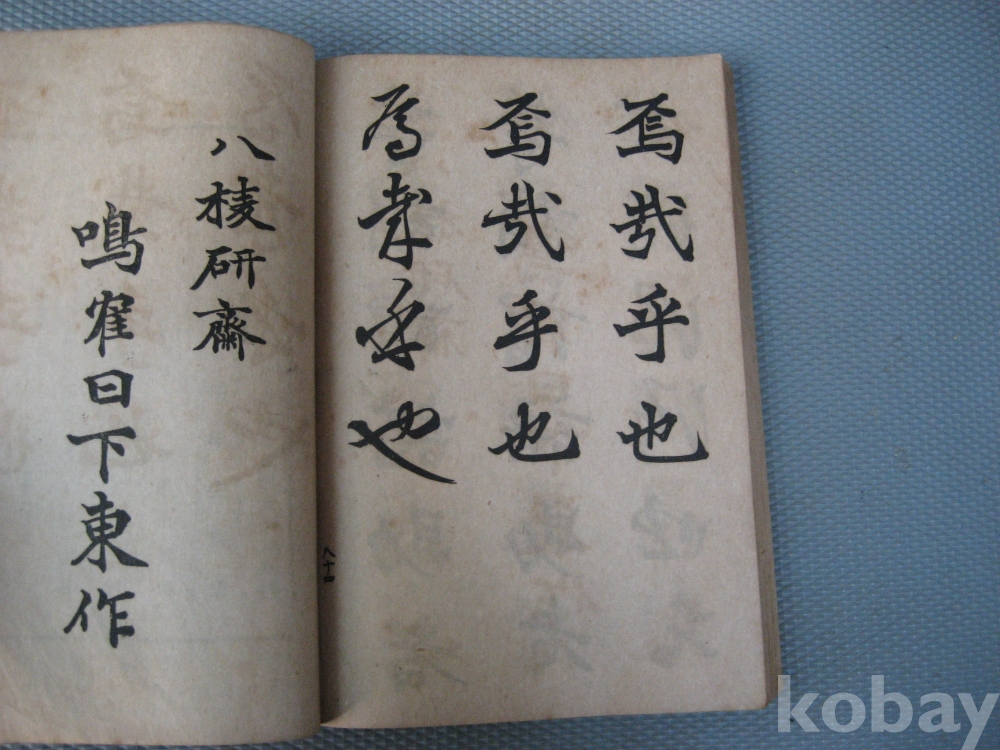 焉哉乎也
焉哉乎也
焉哉乎也
八十四
八棱研齋
鳴隺日下東作
kobay